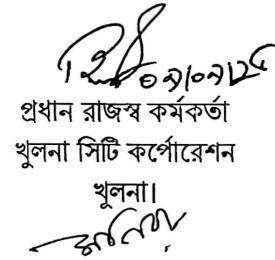 ০৯/০৯/২৫
প্রধান রাজস্ব কর্মকর্তা
খুলনা সিটি কর্পোরেশন
খুলনা।